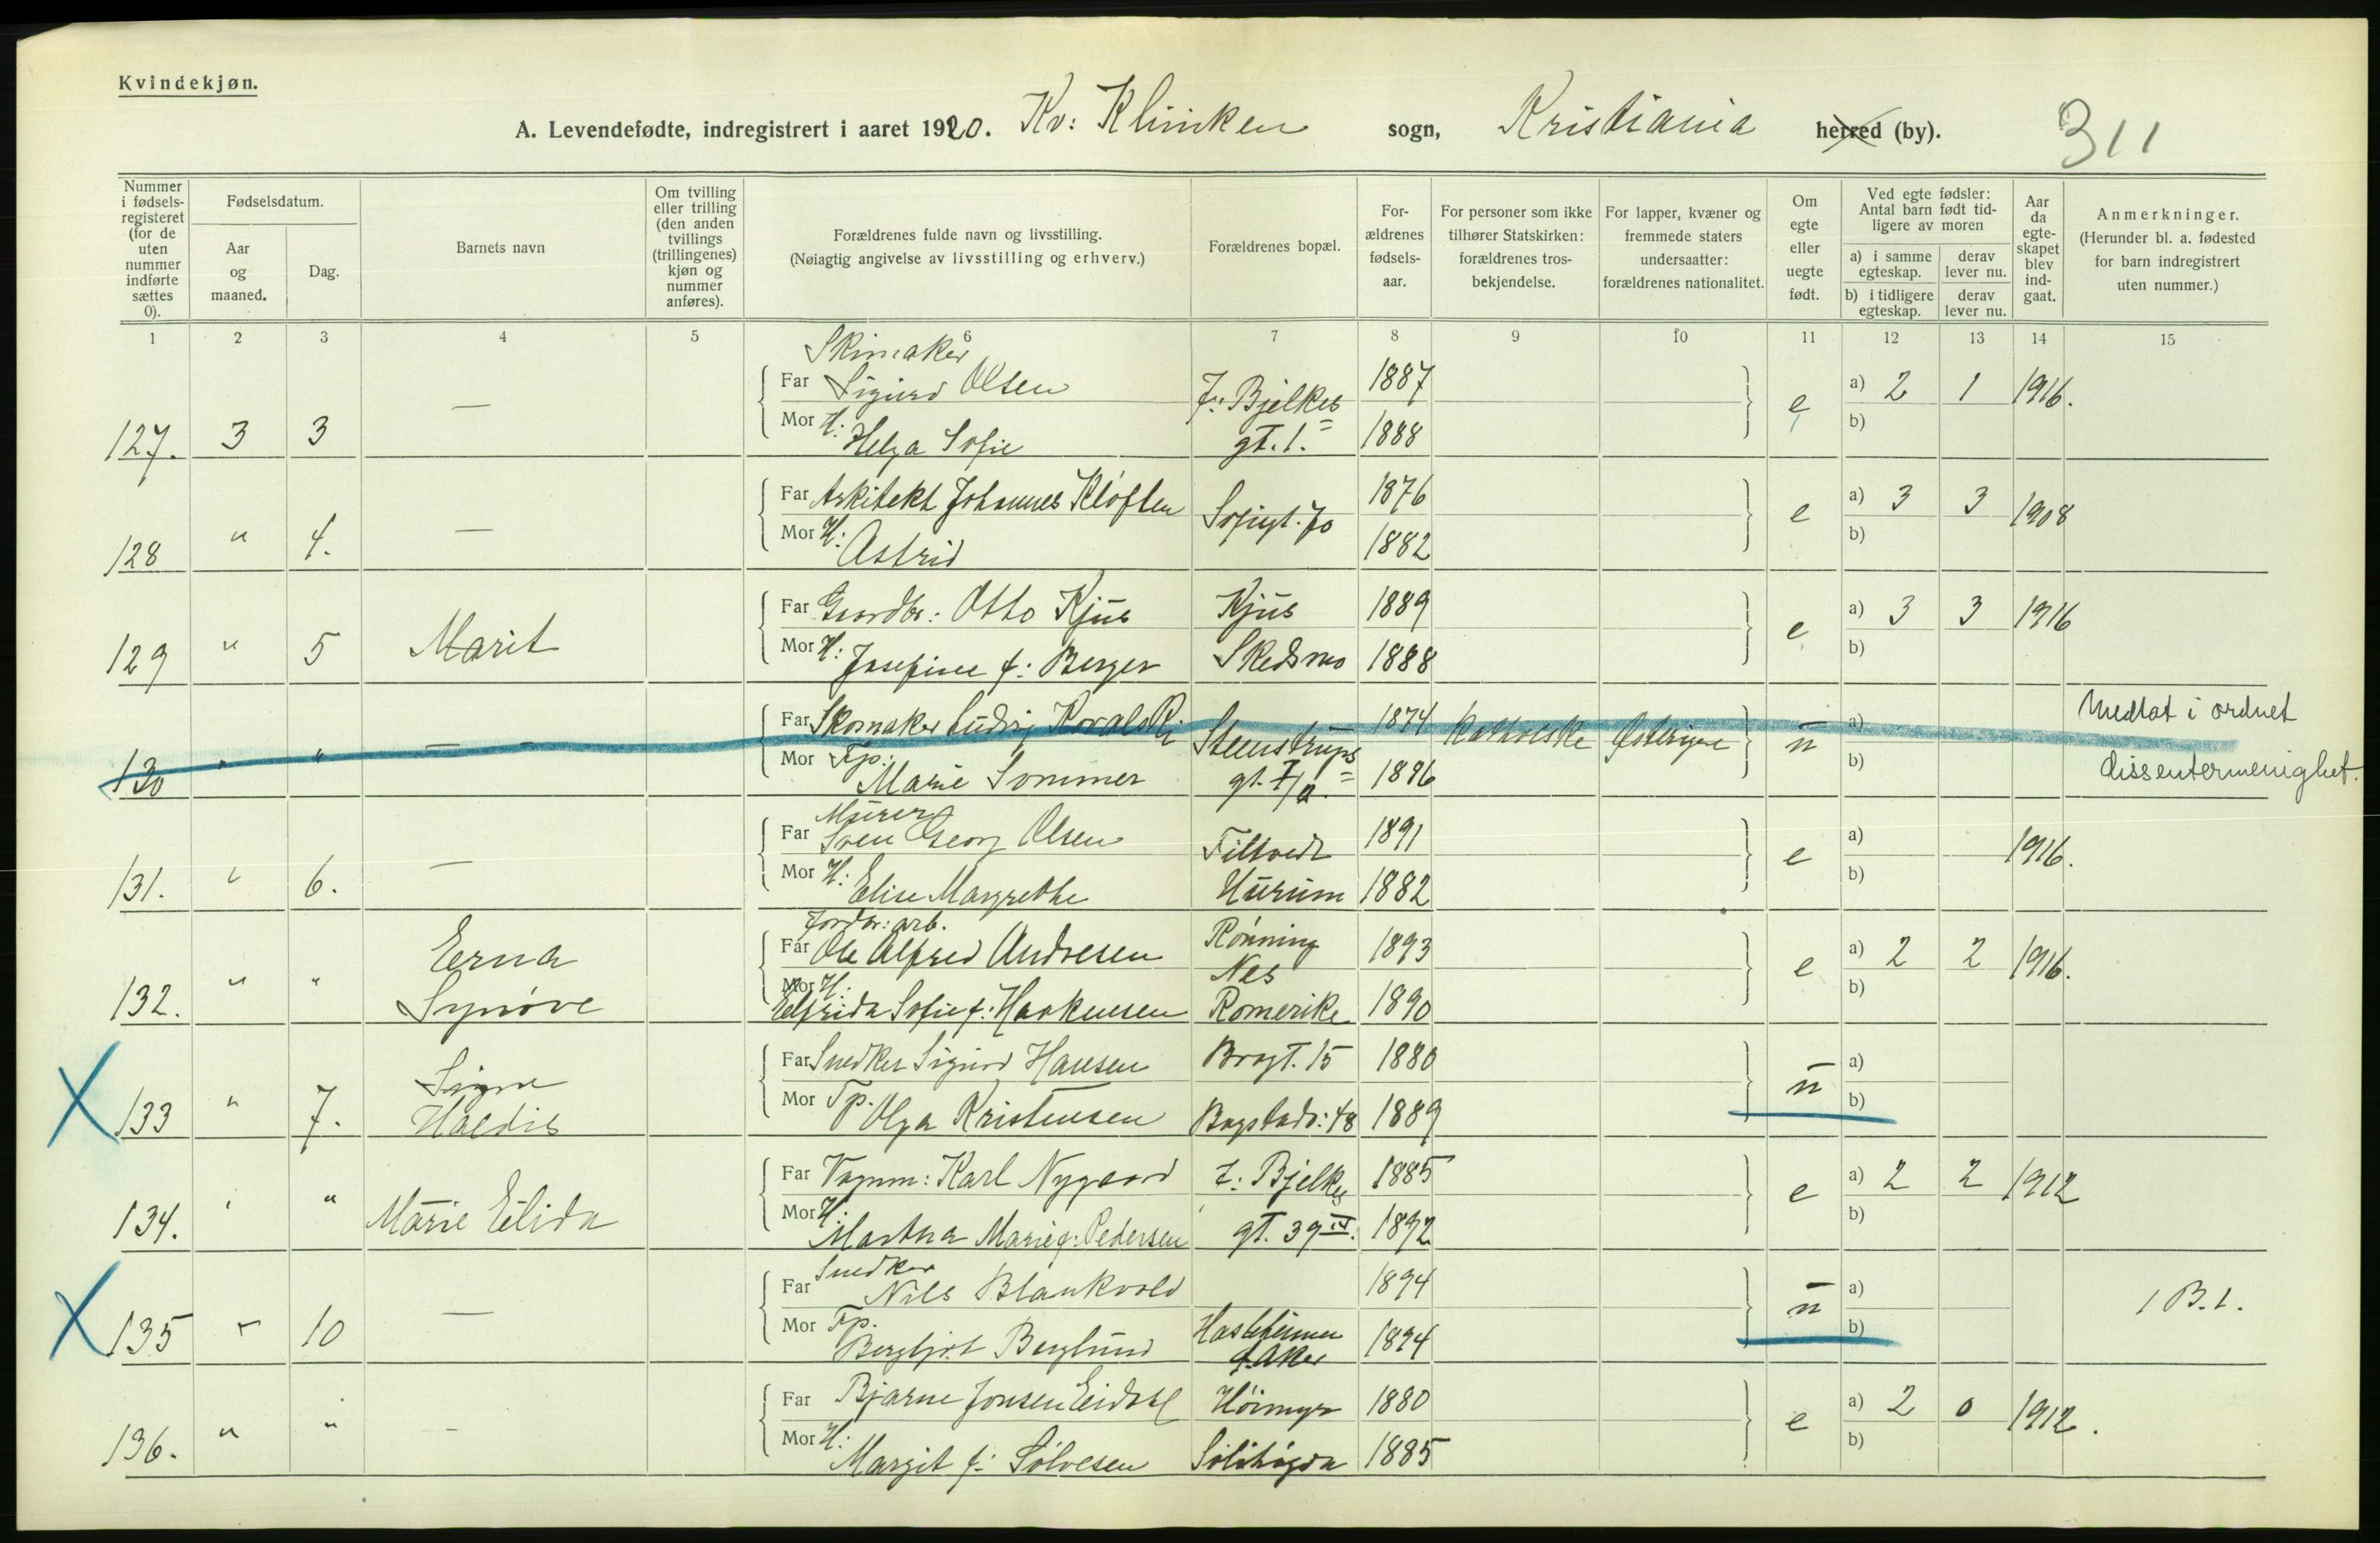 Kvindekjøn.
A. Levendefødte, indregistrert i aaret 1920. Kv: Klinken sogn, Kristiania herred (by). 311
Nummer i fødsels-registeret (for de uten nummer indførte sættes 0).
Fødselsdatum.
Aar og maaned.
Dag.
Barnets navn
Om tvilling eller trilling (den anden tvillings (trillingenes) kjøn og nummer anføres).
Forældrenes fulde navn og livsstilling.
(Nøiagtig angivelse av livsstilling og erhverv.)
Forældrenes bopæl.
For-ældrenes fødsels-aar.
For personer som ikke tilhører Statskirken: forældrenes tros-bekjendelse.
For lapper, kvæner og fremmede staters undersaatter: forældrenes nationalitet.
Om egte eller uegte født.
Ved egte fødsler: Antal barn født tid-ligere av moren
a) i samme egteskap.
derav lever nu.
b) i tidligere egteskap.
derav lever nu.
Aar da egte-skapet blev ind-gaat.
Anmerkninger.
(Herunder bl. a. fødested for barn indregistrert uten nummer.)
1 2 3 4 5 6 7 8 9 10 11 12 13 14 15
Skimaker
Far Sigurd Olsen J. Bjelkes 1887 e a) 2 1 1916.
127. 3 3 — Mor H: Helga Sofie gt. 1. 1888 b)
Far Arkitekt Johannes Kløften Sofigt. 70 1876 e a) 3 3 1908
128 " 4. — Mor H: Astrid 1882 b)
Far Gaardbr: Otto Kjus Kjus 1889 e a) 3 3 1916
129 " 5 Marit Mor H: Josefine f: Berger Skedsmo 1888 b)
Far Skomaker Ludvig Kovalski Steenstrups 1874 Katholske Østerige u a) Medtat i ordnet
130 " " — Mor Tp. Marie Sommer gt. 1896 b) dissentermenighet.
Murer
Far Sven Georg Olsen Filtvedt 1891 e a) 1916.
131. " 6. — Mor H: Elise Margrethe Hurum 1882 b)
Jordbr: arb.
Far Ole Alfred Andresen Rønning 1893 e a) 2 2 1916.
Erna Nes
132. " " Synøve Mor H: Elfrida Sofie f: Haakensen Romerike 1890 b)
Far Snedker Sigurd Hansen Brogt. 15 1880 u a)
Signe
133 " 7. Haldis Mor Tp. Olga Kristensen Bogstadv: 48 1889 b)
Far Vognm: Karl Nygaard J: Bjelkes 1885 e a) 2 2 1912
134. " " Marie Elida Mor H: Martha Marie f: Pedersen gt. 39 IV. 1892 b)
Snedker
Far Nils Blankvold 1894 u a) 1 B. 1.
135 " 10 — Mor Tp. Bergljot Berglund Aker 1894 b)
Far Bjarne Jonsen Høimyr 1880 e a) 2 0 1912.
136. " " — Mor H: Margit f: Sølvesen Solihøgda 1885 b)